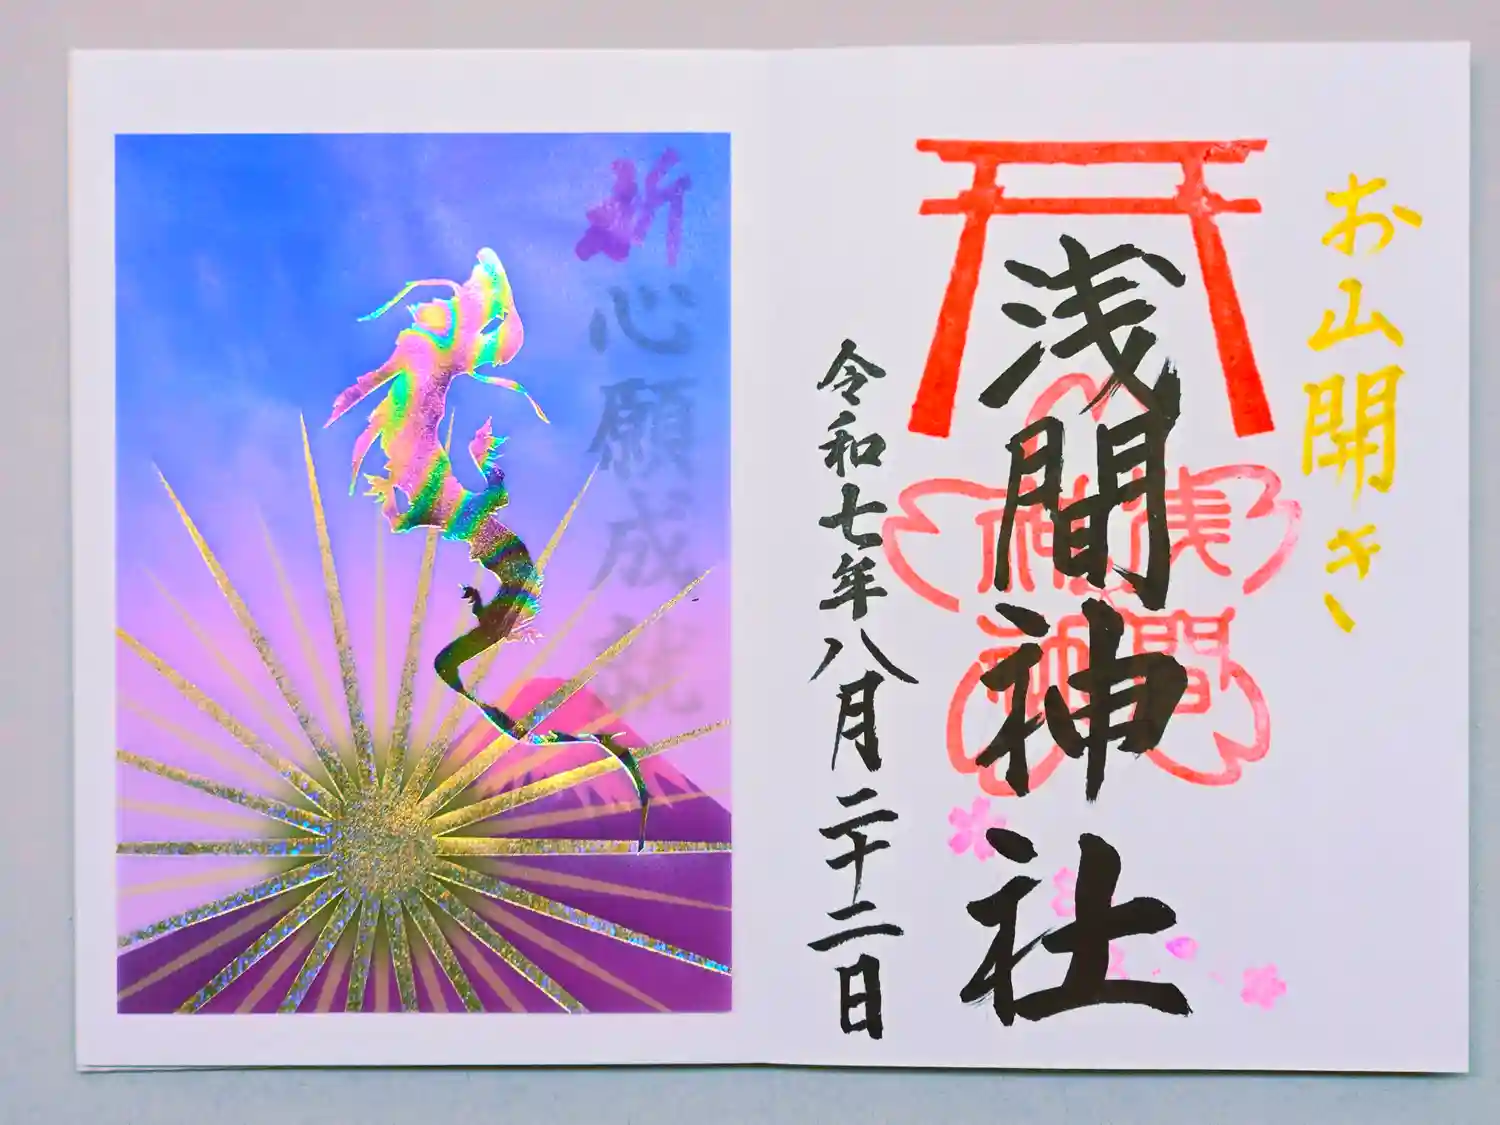 お山開き
浅間神社
浅間神社
令和七年八月二十二日
祈
心願成就